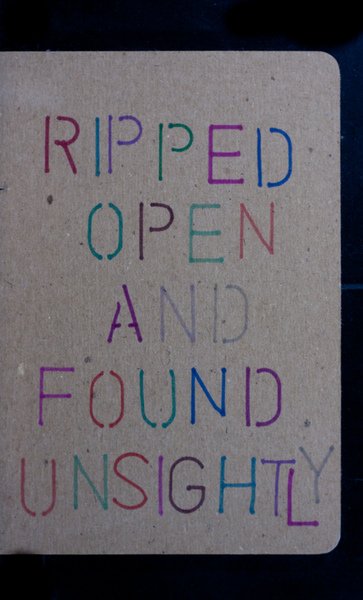 RIPPED
OPEN
AND
FOUND
UNSIGHTLY